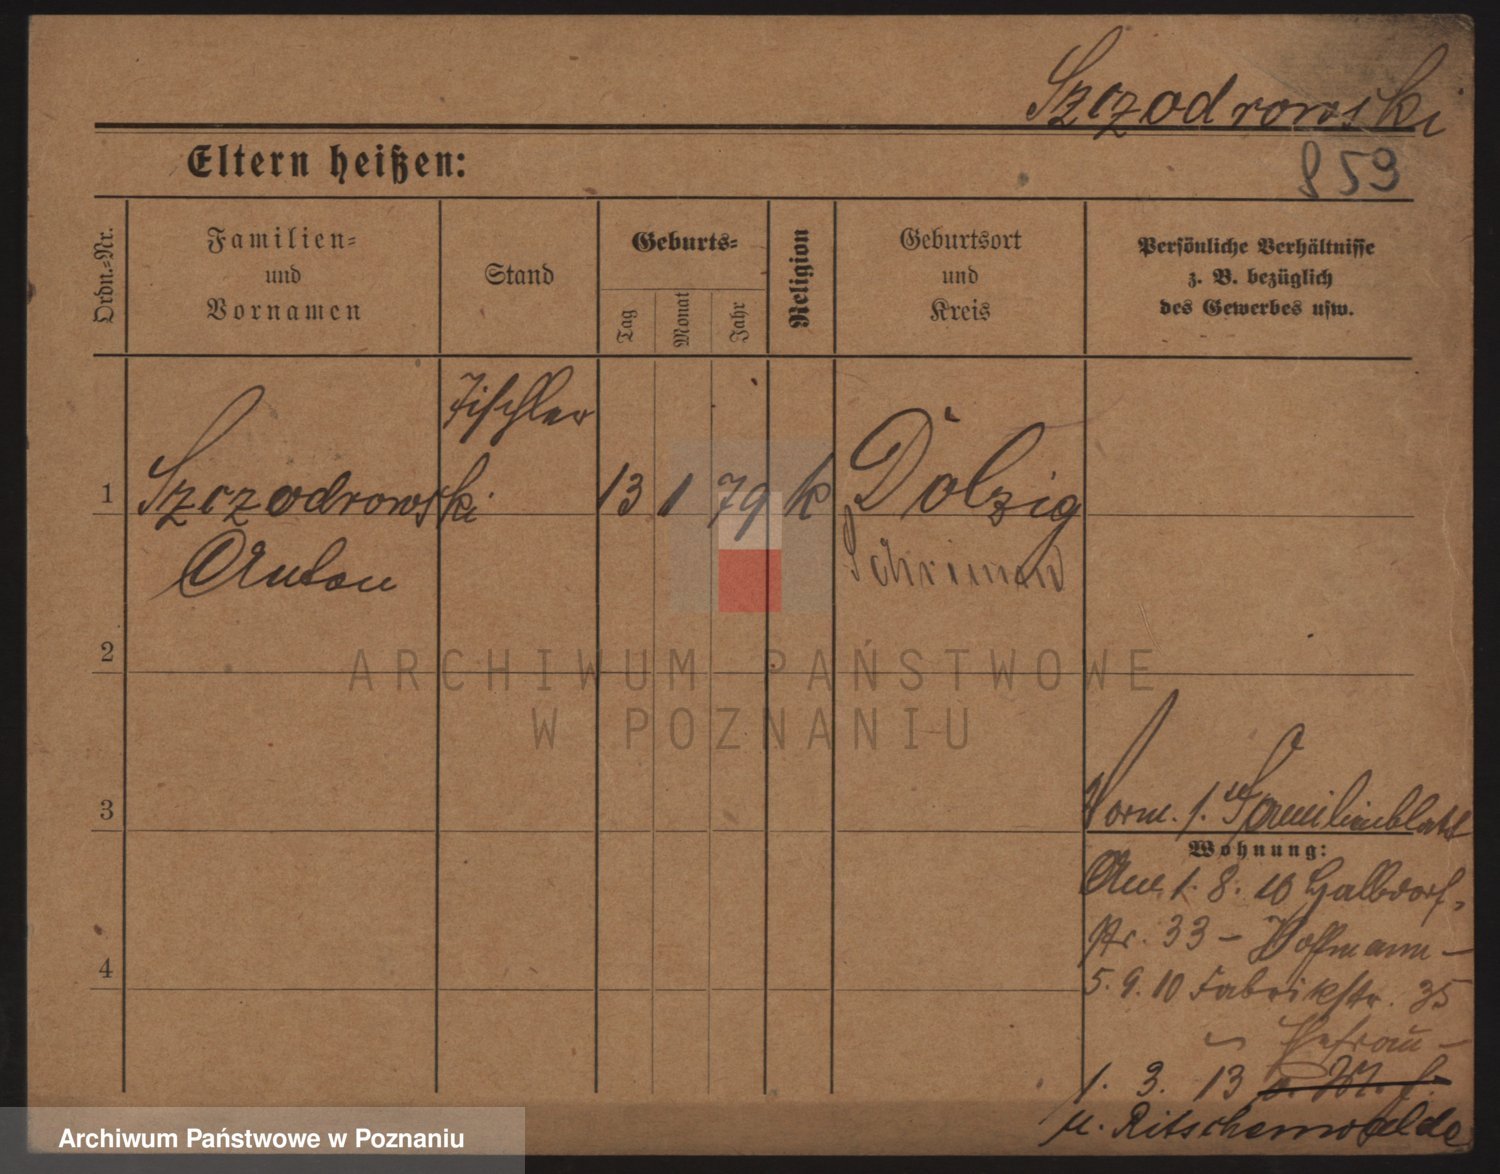 Szczodrowski
859
Eltern heißen:
Ordn.-Nr.
Familien-
und
Vornamen
Stand
Geburts-
Tag
Monat
Jahr
Religion
Geburtsort
und
Kreis
Persönliche Verhältnisse
z. B. bezüglich
des Gewerbes usw.
Tischler
1 Szczodrowski 13 1 79 k Dolzig
Anton Schrimm
2
ARCHIWUM PAŃSTWOWE
W POZNANIU
3
Vorm. 1. Familienblatt
Wohnung:
1. 8. 10 Halbdorf-
str. 33 – Hoffmann –
4
5. 9. 10 Fabrikstr. 35
1. 3. 13
n. Ritschenwalde
Archiwum Państwowe w Poznaniu